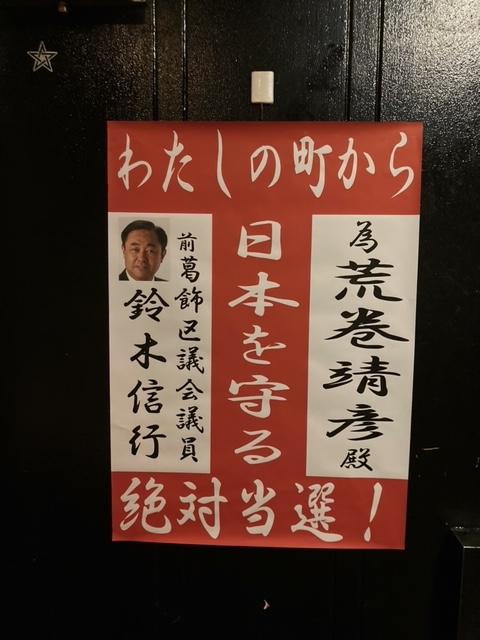 わたしの町から
為 荒巻靖彦 殿
日本を守る
前葛飾区議会議員
鈴木信行
絶対当選！